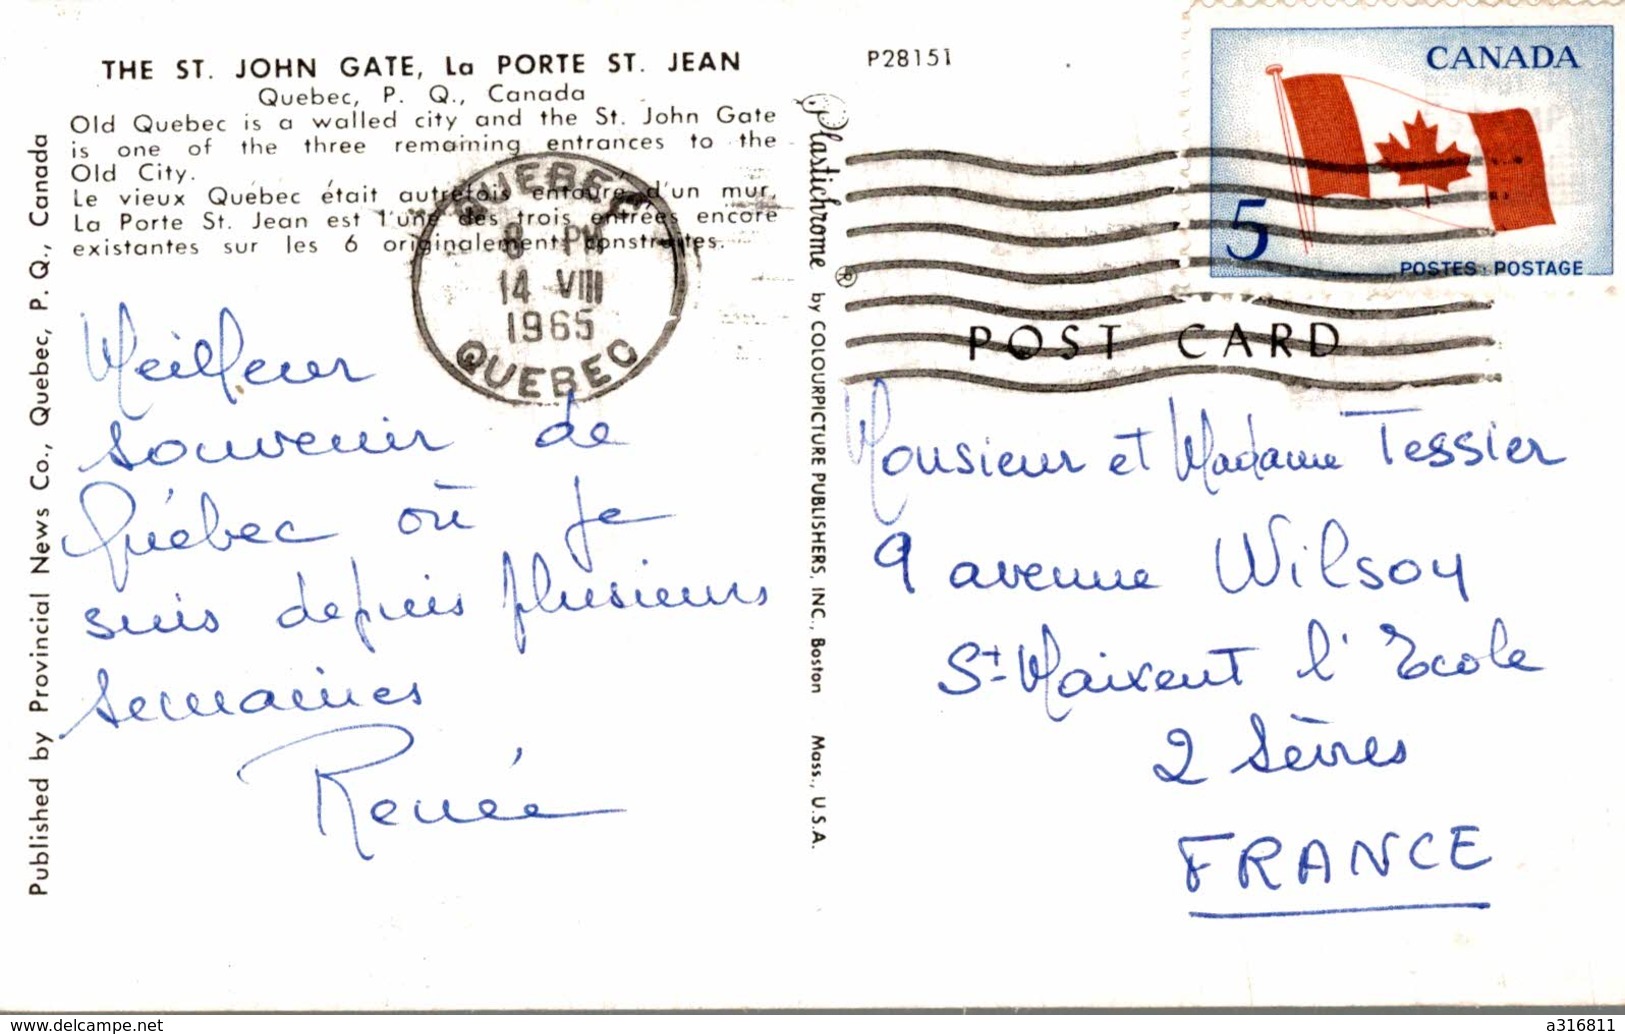 THE ST. JOHN GATE, La PORTE ST. JEAN
Quebec, P. Q., Canada
Old Quebec is a walled city and the St. John Gate
is one of the three remaining entrances to the
Old City.
Le vieux Québec était autrefois entouré d'un mur,
La Porte St. Jean est l'une des trois entrées encore
existantes sur les 6 originalement construites.
P28151
CANADA
5
POSTES POSTAGE
QUEBEC
8 PM
14 VIII
1965
QUEBEC
POST CARD
Published by Provincial News Co., Quebec, P. Q., Canada
Plastichrome ® by COLOURPICTURE PUBLISHERS, INC., Boston Mass., U.S.A.
Meilleur
souvenir de
Québec où je
suis depuis plusieurs
semaines
Renée
Monsieur et Madame Tessier
9 avenue Wilson
St Maixent l'Ecole
2 Sèvres
FRANCE
www.delcampe.net
a316811